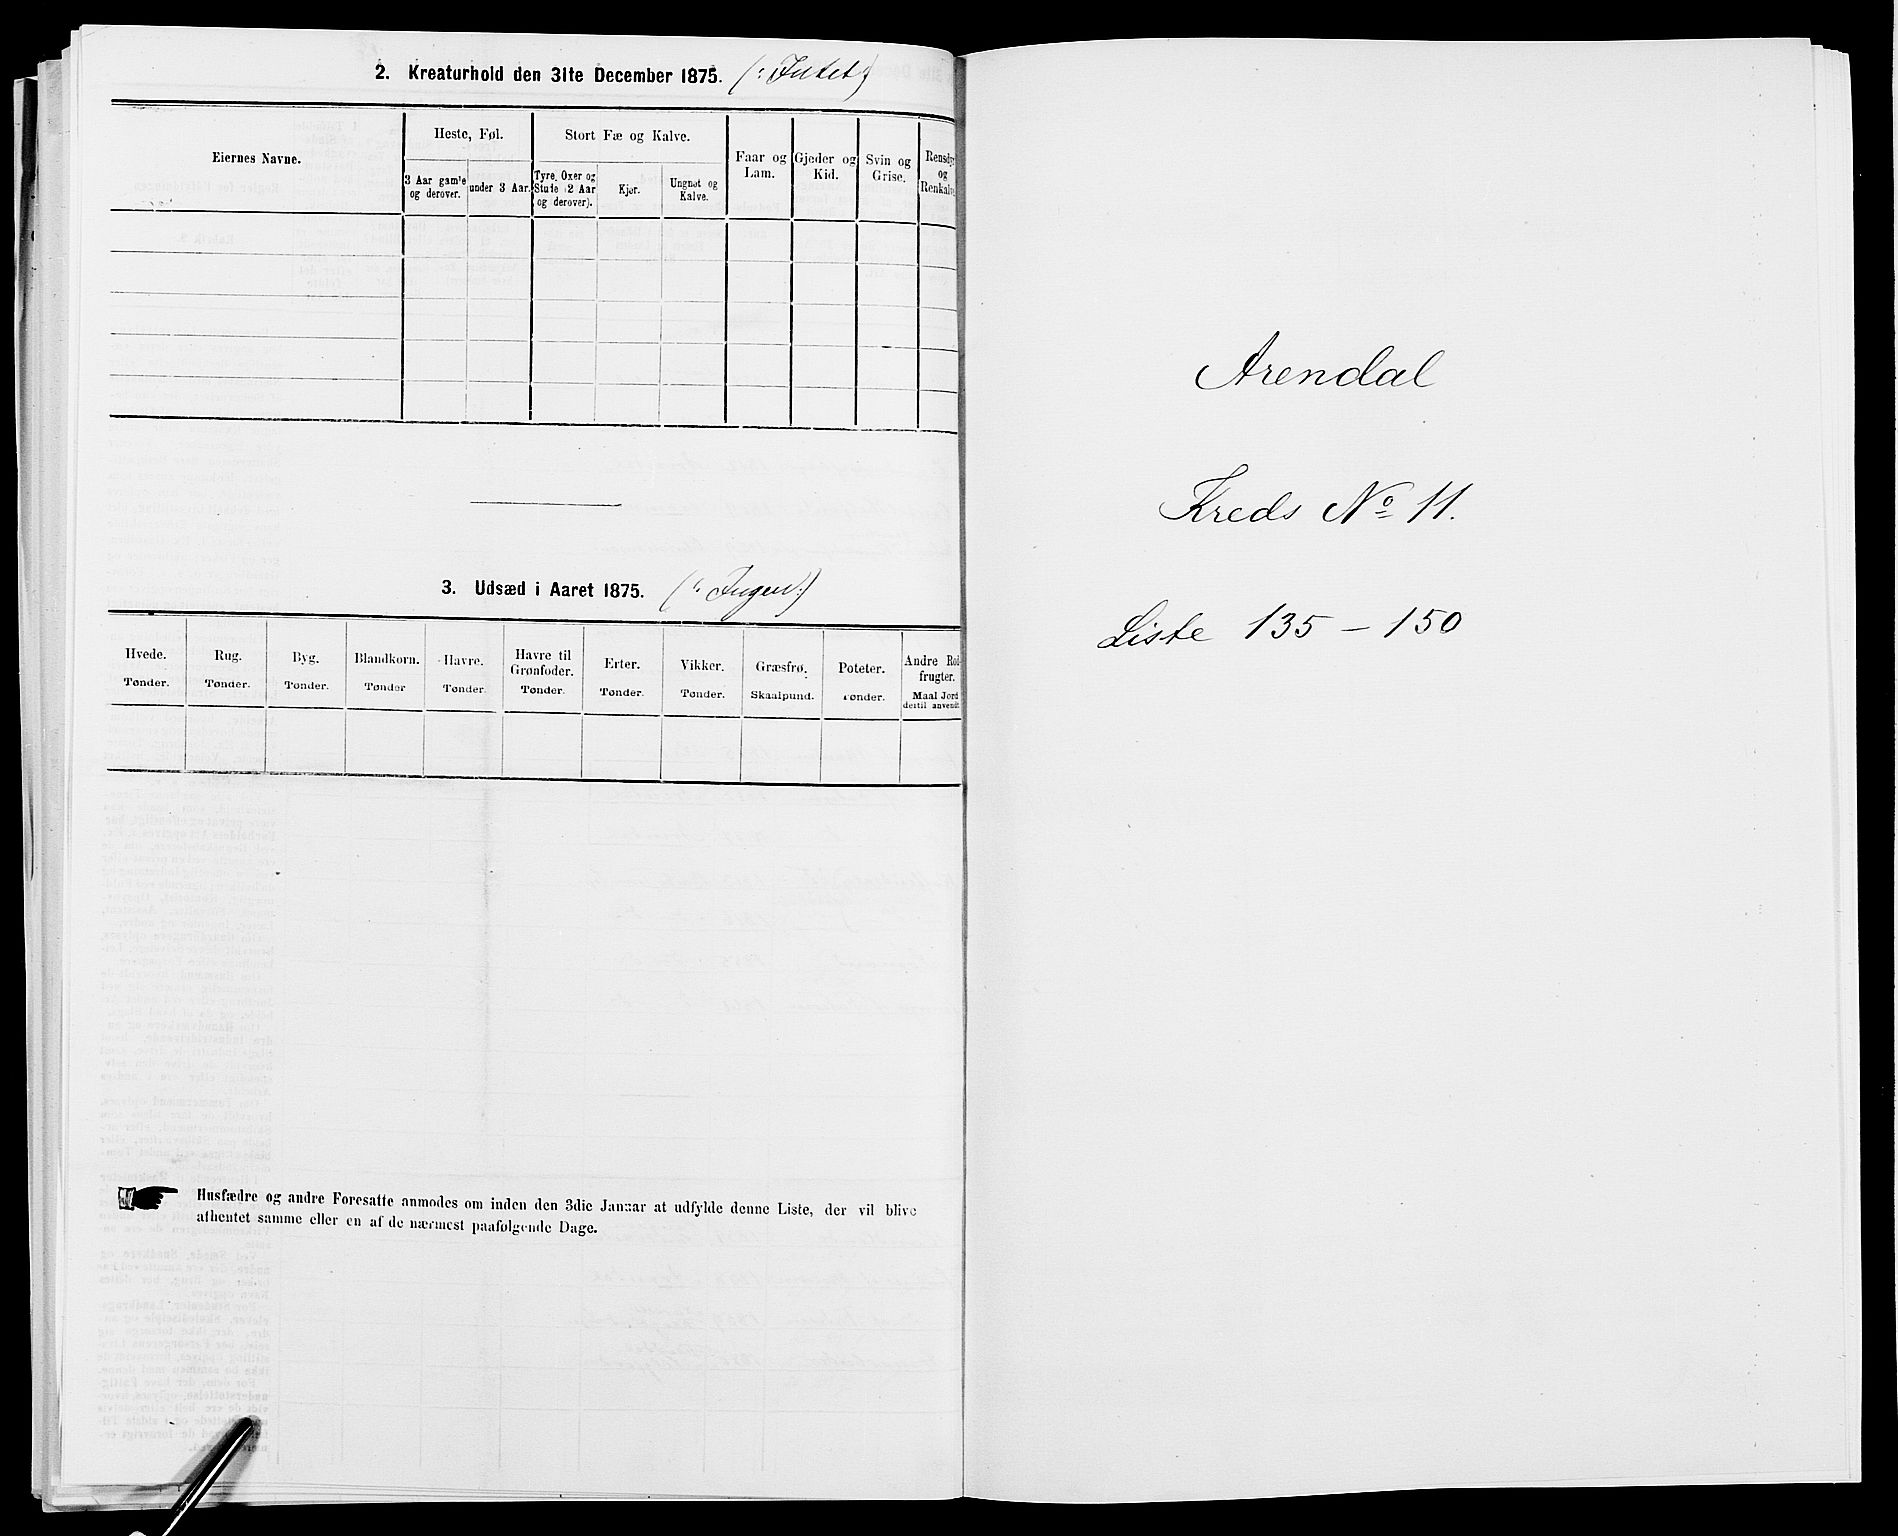 2. Kreaturhold den 31te December 1875. (: Intet :)
Eiernes Navne.
Heste, Føl.
3 Aar gamle
og derover.
under 3 Aar.
Stort Fæ og Kalve.
Tyre, Oxer og
Stude (2 Aar
og derover).
Kjør.
Ungnøt og
Kalve.
Faar og
Lam.
Gjeder og
Kid.
Svin og
Grise.
Rensdyr
og
Renkalve
3. Udsæd i Aaret 1875. (: Ingen :)
Hvede.
Tønder.
Rug.
Tønder.
Byg.
Tønder.
Blandkorn.
Tønder
Havre.
Tønder.
Havre til
Grønfoder.
Tønder.
Erter.
Tønder.
Vikker.
Tønder.
Græsfrø.
Skaalpund.
Poteter.
Tønder.
Andre Rod
frugter.
Maal Jord
dertil anvendt
Husfædre og andre Foresatte anmodes om inden den 3die Januar at udfylde denne Liste, der vil blive
afhentet samme eller en af de nærmest paafølgende Dage.
Arendal
Kreds No 11.
Liste 135 – 150